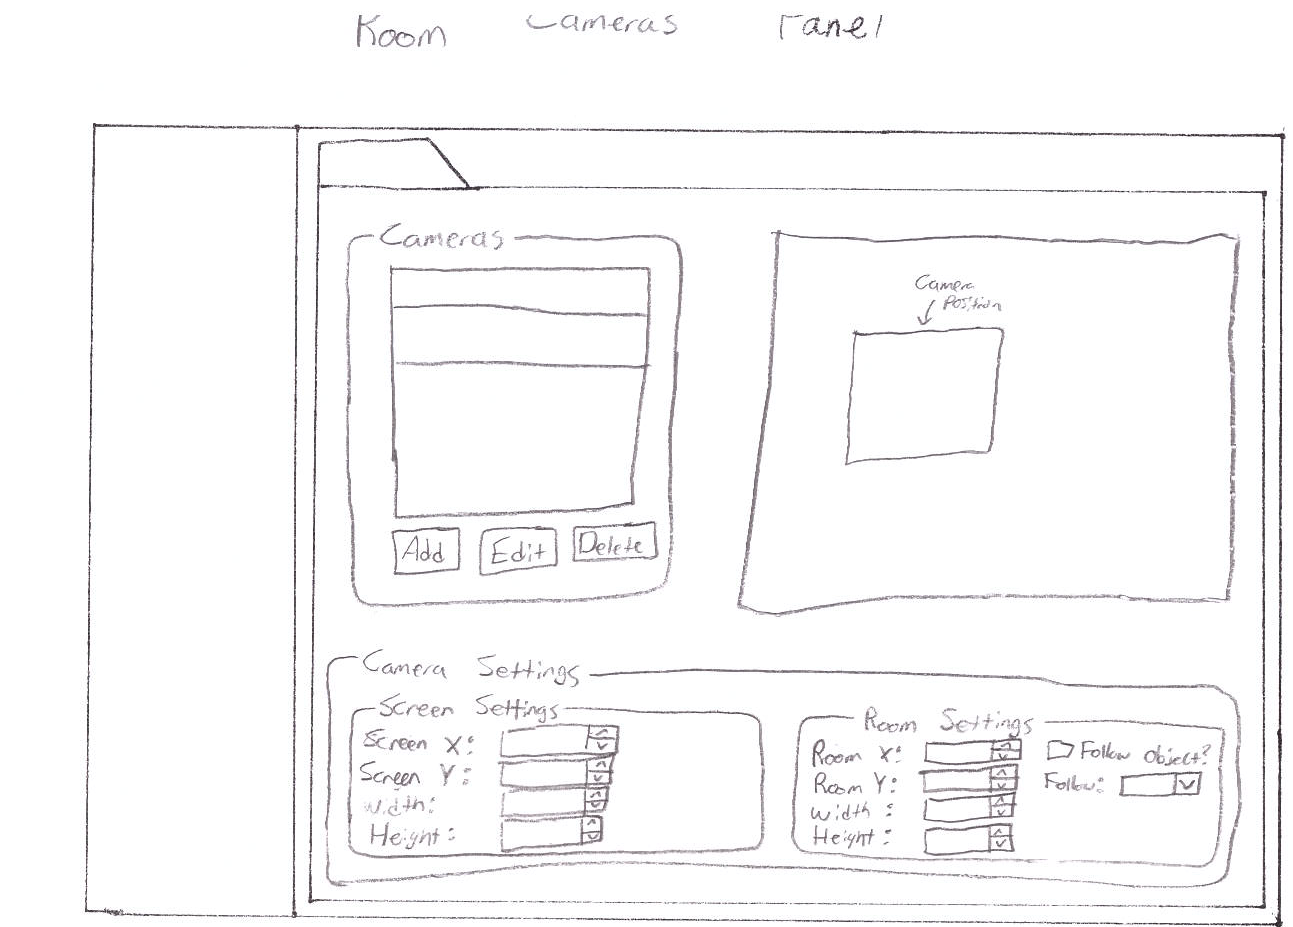 Room Cameras Panel
Cameras
Camera
Position
Add Edit Delete
Camera Settings
Screen Settings
Screen X:
Screen Y:
Width:
Height:
Room Settings
Room X:
Room Y:
Width :
Height :
Follow Object?
Follow: